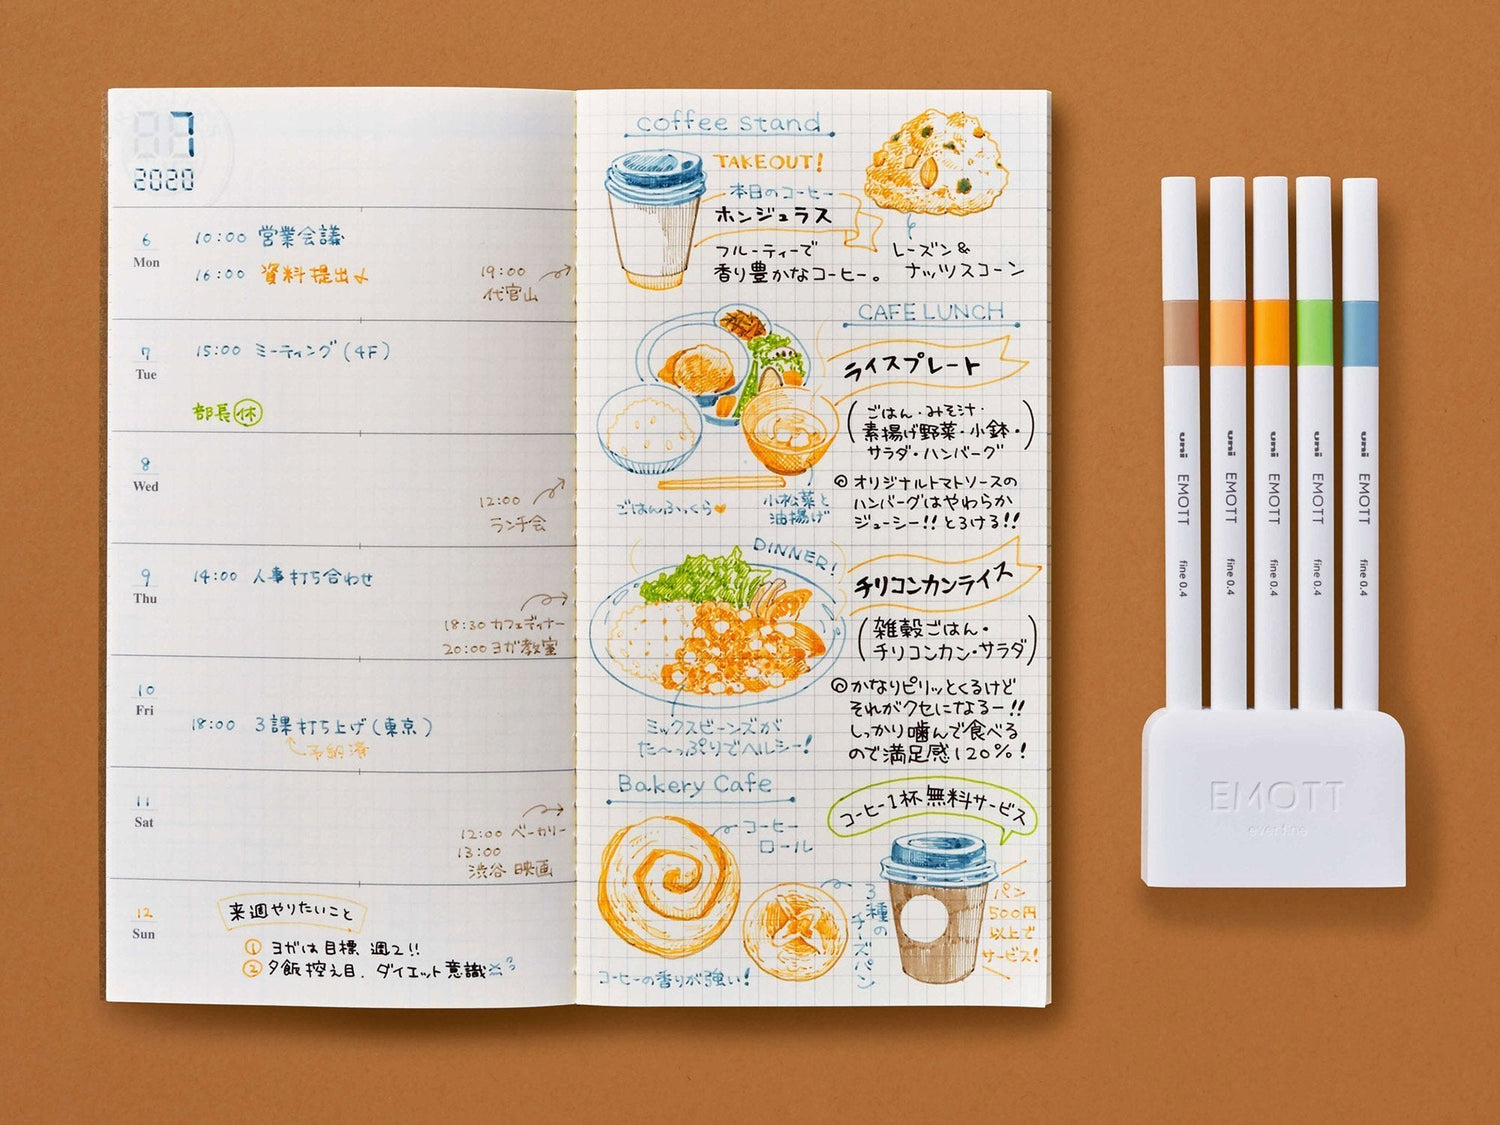 7
2020
6
Mon
10:00 営業会議
16:00 資料提出
19:00
代官山
7
Tue
15:00 ミーティング(4F)
部長休
8
Wed
12:00
ランチ会
9
Thu
14:00 人事打ち合わせ
18:30 カフェディナー
20:00 ヨガ教室
10
Fri
18:00 3課打ち上げ(東京)
予約済
11
Sat
12:00 ベーカリー
13:00
渋谷 映画
12
Sun
来週やりたいこと
① ヨガは目標 週2!!
② 夕飯控え目、ダイエット意識
coffee stand
TAKEOUT!
本日のコーヒー
ホンジュラス
フルーティーで
香り豊かなコーヒー。
レーズン&
ナッツスコーン
CAFE LUNCH
ライスプレート
(ごはん・みそ汁・
素揚げ野菜・小鉢・
サラダ・ハンバーグ)
◎オリジナルトマトソースの
ハンバーグはやわらか
ジューシー!!とろける!!
ごはんふっくら
小松菜と
油揚げ
DINNER!
チリコンカンライス
(雑穀ごはん・
チリコンカン・サラダ)
◎かなりピリッとくるけど
それがクセになるー!!
しっかり噛んで食べる
ので満足感120%!
ミックスビーンズが
た〜っぷりでヘルシー!
Bakery Cafe
コーヒー1杯無料サービス
コーヒー
ロール
3種の
チーズパン
コーヒーの香りが強い!
パン
500円
以上で
サービス!
uni EMOTT fine 0.4
uni EMOTT fine 0.4
uni EMOTT fine 0.4
uni EMOTT fine 0.4
uni EMOTT fine 0.4
EMOTT
ever fine